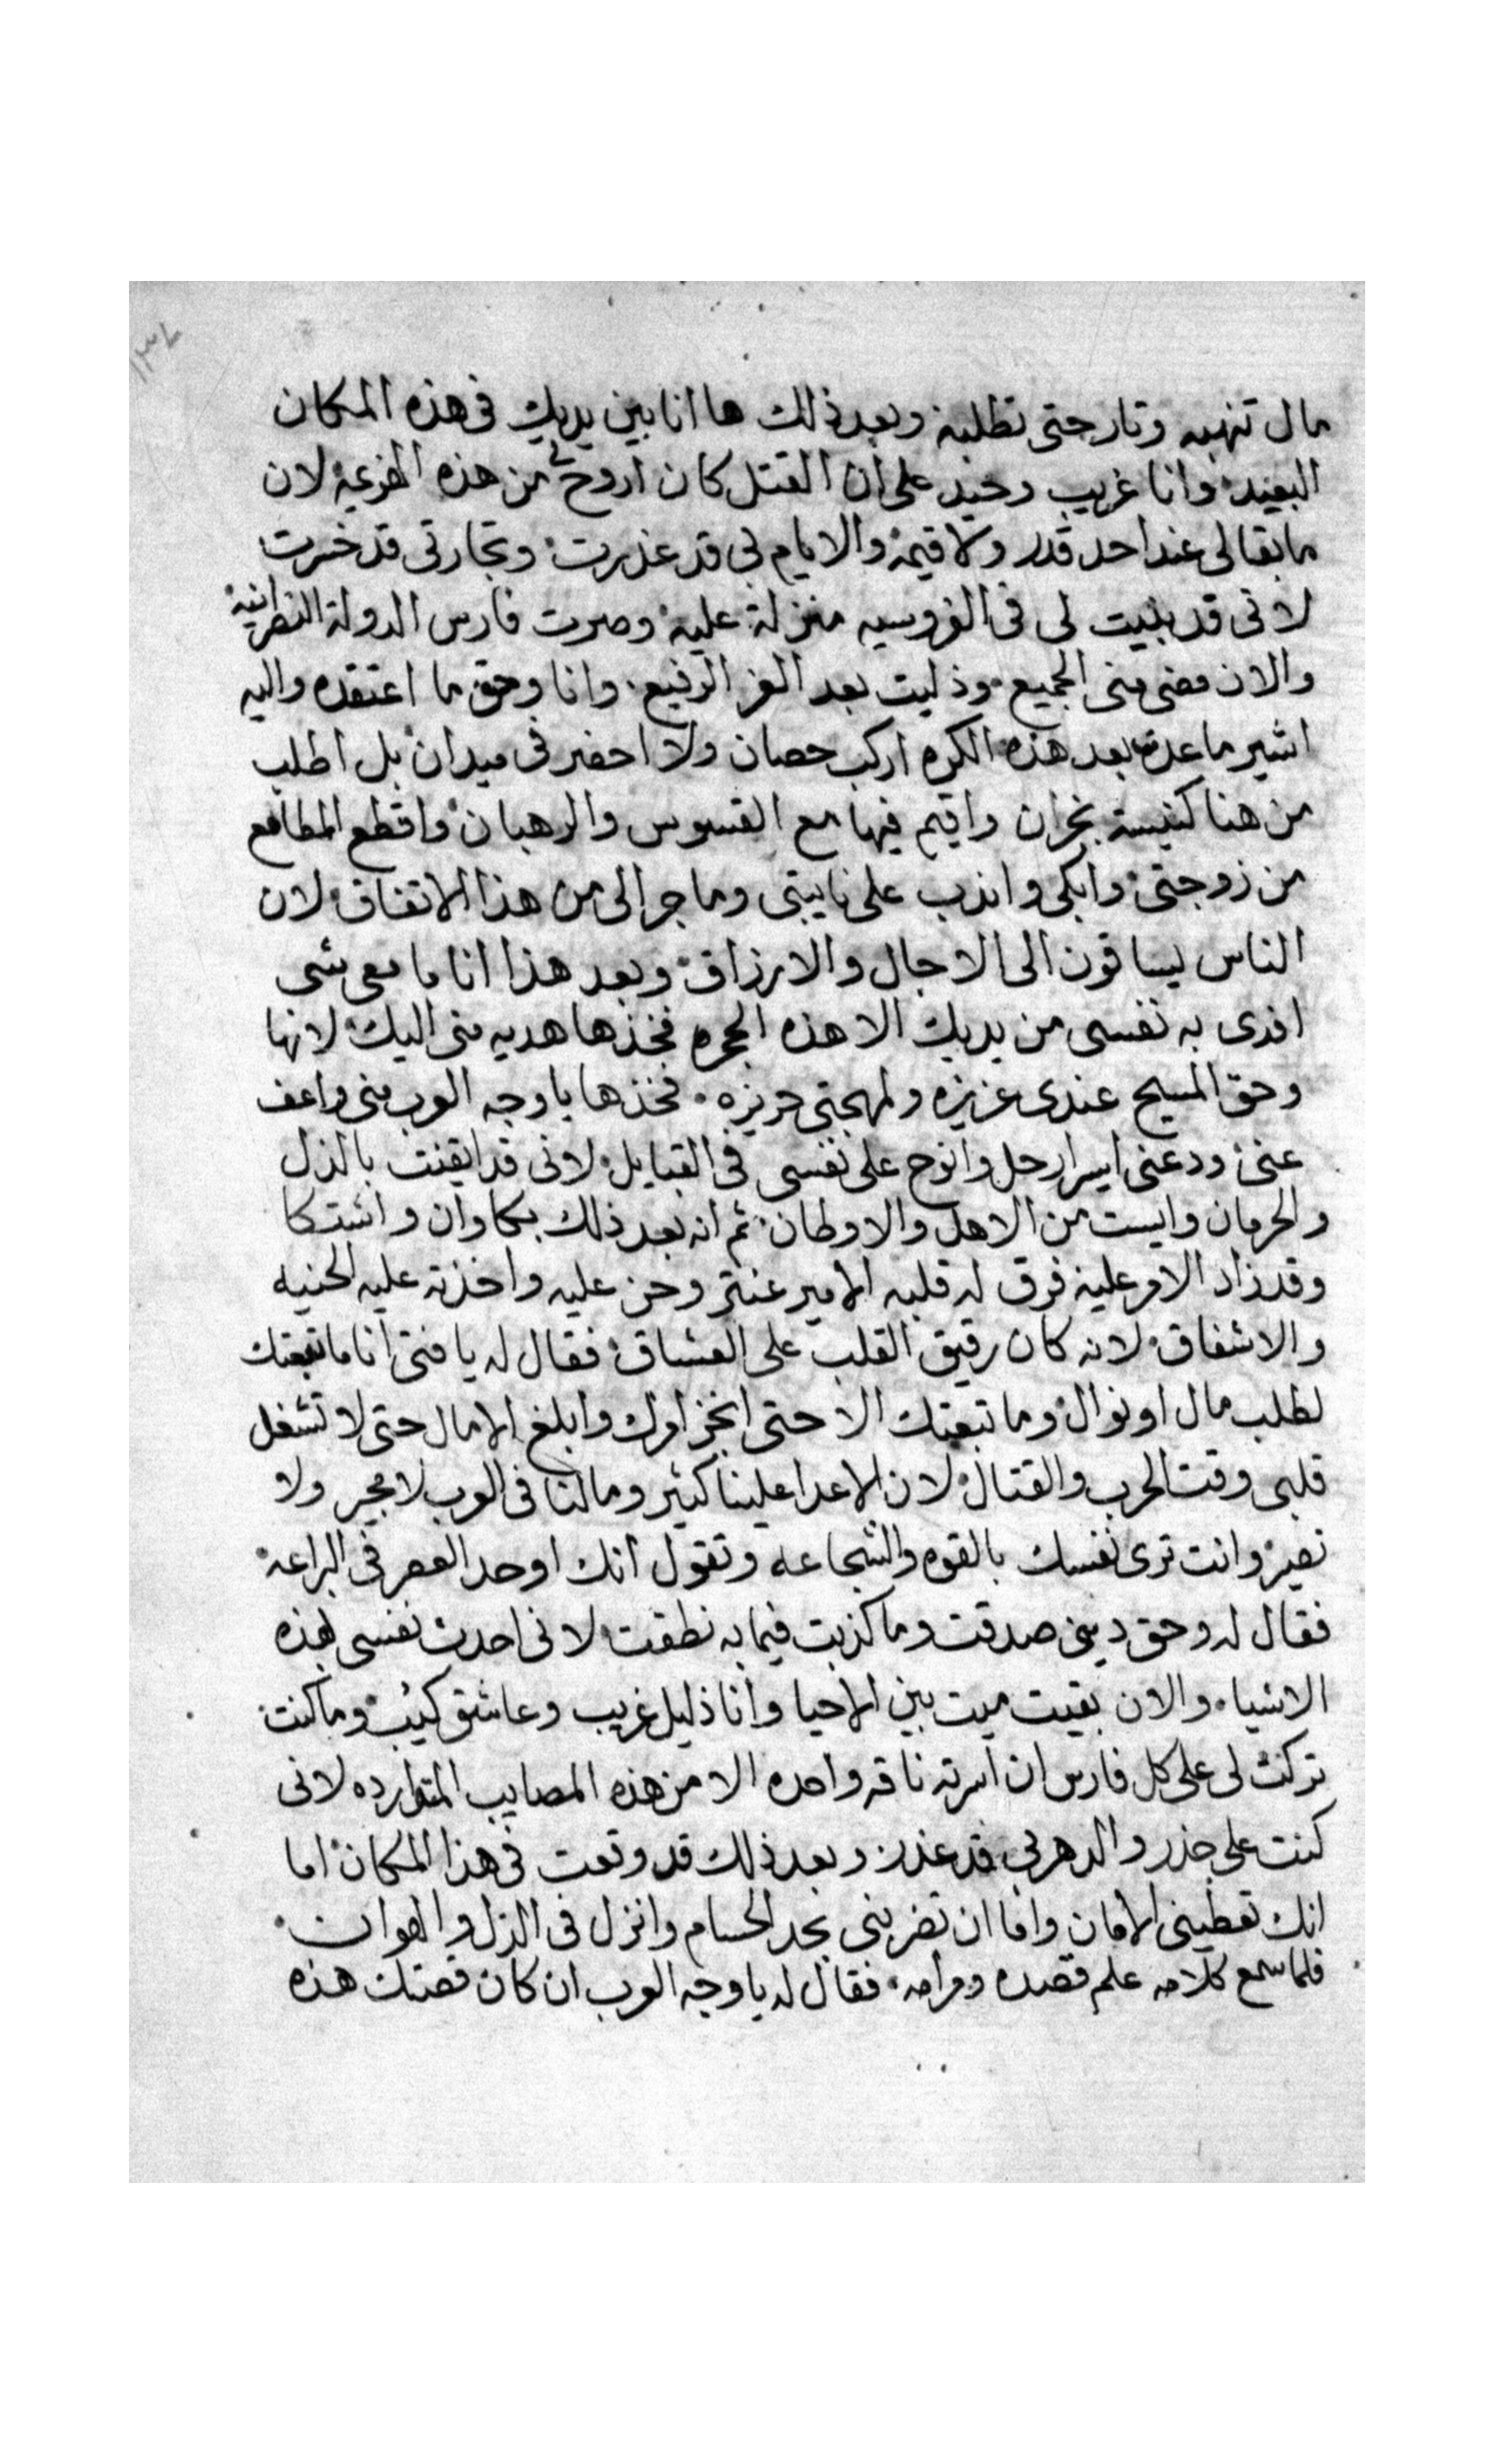 مال تنهبه وتار حتى تطلبه وبعد ذلك ها انا بين يديك فى هذه المكان
البعيد وانا غريب وحيد على ان القتل كان اروح لى من هذه الهزيمه لان
ما بقا لى عند احد قدر ولا قيمة والايام بى قد غدرت وتجارتى قد خسرت
لانى قد بنيت لى فى الفروسيه منزلة علية وصرت فارس الدولة النصرانية
والان مضى منى الجميع وذليت بعد العز الرفيع وانا وحق ما اعتقده واليه
اشير ما عدت بعد هذه الكره اركب حصان ولا احضر فى ميدان بل اطلب
من هنا كنيسة نجران واقيم فيها مع القسوس والرهبان واقطع المطامع
من زوجتى وابكى واندب على نايبتى وما جرا لى من هذا الاتفاق لان
الناس يساقون الى الاجال والارزاق وبعد هذا انا ما معى شى
افدى به نفسى من يديك الا هذه الحجره فخذها هديه منى اليك لانها
وحق المسيح عندى عزيزه ولمهجتى حريزه فخذها يا وجه العرب منى واعف
عنى ودعنى اسير ارحل وانوح على نفسى فى القبايل لانى قد ايقنت بالذل
والحرمان وايست من الاهل والاوطان ثم انه بعد ذلك بكا وان واشتكا
وقد زاد الامر عليه فرق له قلبه الامير عنتر وحن عليه واخذته عليه الحنيه
والاشفاق لانه كان رقيق القلب على العشاق فقال له يا فتى انا ما تبعتك
لطلب مال او نوال وما تبعتك الا حتى انجز امرك وابلغ الامال حتى لا تشغل
قلبى وقت الحرب والقتال لان الاعدا علينا كثير وما لنا فى العرب لا مجير ولا
نصير وانت ترى نفسك بالقوه والشجاعه وتقول انك اوحد العصر فى البراعه
فقال له وحق دينى صدقت وما كذبت فيما به نطقت لانى احدث نفسى بهذه
الاشياء والان بقيت ميت بين الاحيا وانا ذليل غريب وعاشق كئيب وما كنت
تركت لى على كل فارس ان اسرته ناقه واحده الا من هذه المصايب المتوارده لانى
كنت على حذر والدهر بى قد غدر وبعد ذلك قد وقعت فى هذا المكان اما
انك تعطينى الامان واما ان تضربنى بحد الحسام وانزل فى الذل والهوان
فلما سمع كلامه علم قصده ومرامه فقال له يا وجه العرب ان كان قصتك هذه